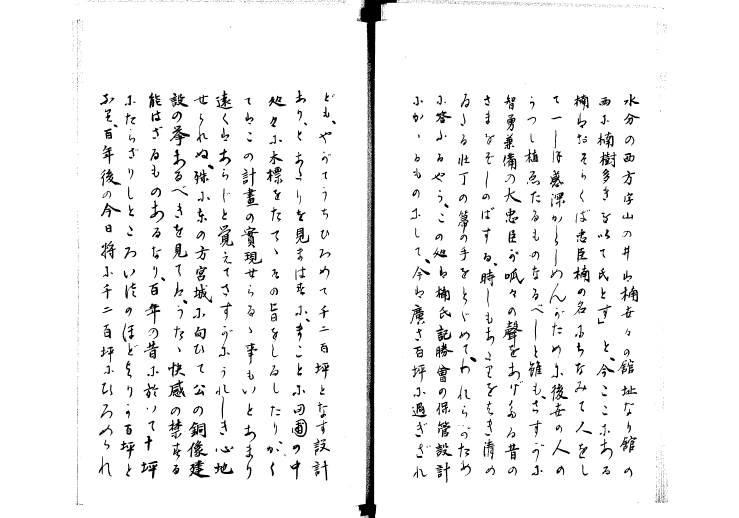 水分の西方字山の井ハ楠世々の館址なり館の
西ニ楠樹多きを以て氏とす」と、今ここにある
楠ハおそらくば忠臣楠の名にちなみて人をし
て一しほ感深からしめんがために後世の人の
うつし植ゑたるものなるべしと雖も、さすがに
智勇兼備の大忠臣が呱々の聲をあげたる昔の
さまなぞしのばする、時しもあたりをはき清め
ゐたる壮丁の箒の手をとゞめて、われらがため
に答ふるやう、この処ハ楠氏記勝會の保管設計
にかゝるものにして、今ハ廣さ百坪に過ぎざれ
ども、やがてうちひろめて千二百坪となす設計
あり、とあたりを見まはせば、まことに田圃の中
処々に木標をたてゝその旨をしるしたり、かく
てハこの計畫の實現せらるゝ事もいとあまり
遠くハあらじと覚えてさすがにうれしき心地
せられぬ、殊に東の方宮城に向ひて公の銅像建
設の挙あるべきを見てハ、うたゝ快感の禁ずる
能はざるものあるなり、百年の昔に於いて十坪
にたらざりしところハ後のほどよりか百坪と
なり、百年後の今日将に千二百坪にひろめられ